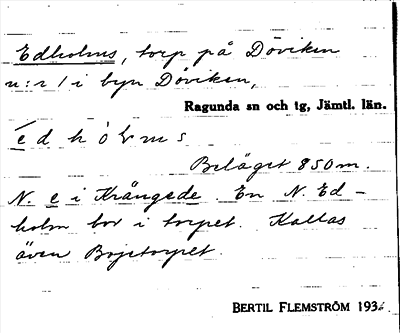 Edholms, torp på Döviken
n:r 1 i byn Döviken,
Ragunda sn och tg, Jämtl. län.
é d h ò l m s
Beläget 850 m.
N. e i Krångede. En N. Ed-
holm bor i torpet. Kallas
även Bojetorpet.
BERTIL FLEMSTRÖM 193